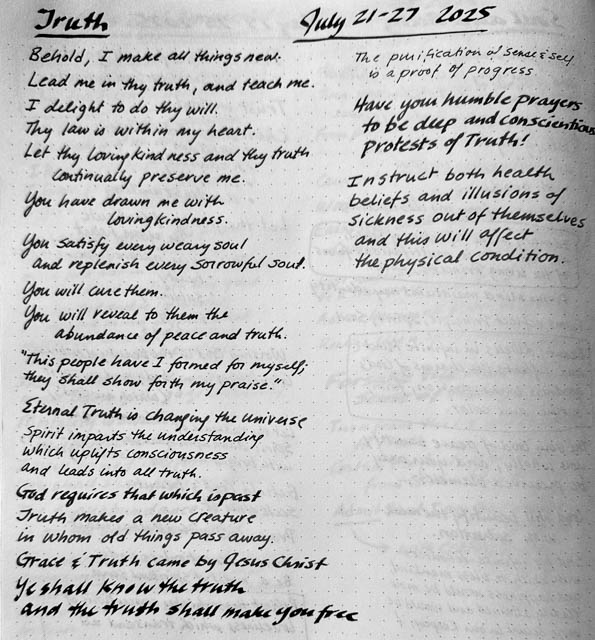 Truth
July 21-27 2025
Behold, I make all things new.
Lead me in thy truth, and teach me.
I delight to do thy will.
Thy law is within my heart.
Let thy lovingkindness and thy truth
continually preserve me.
You have drawn me with
lovingkindness.
You satisfy every weary soul
and replenish every sorrowful soul.
You will cure them.
You will reveal to them the
abundance of peace and truth.
"This people have I formed for myself;
they shall show forth my praise."
Eternal Truth is changing the universe
Spirit imparts the understanding
which uplifts consciousness
and leads into all truth.
God requires that which is past
Truth makes a new creature
in whom old things pass away.
Grace & Truth came by Jesus Christ
Ye shall know the truth
and the truth shall make you free
The purification of sense & self
is a proof of progress
Have your humble prayers
to be deep and conscientious
protests of Truth!
Instruct both health
beliefs and illusions of
sickness out of themselves
and this will affect
the physical condition.